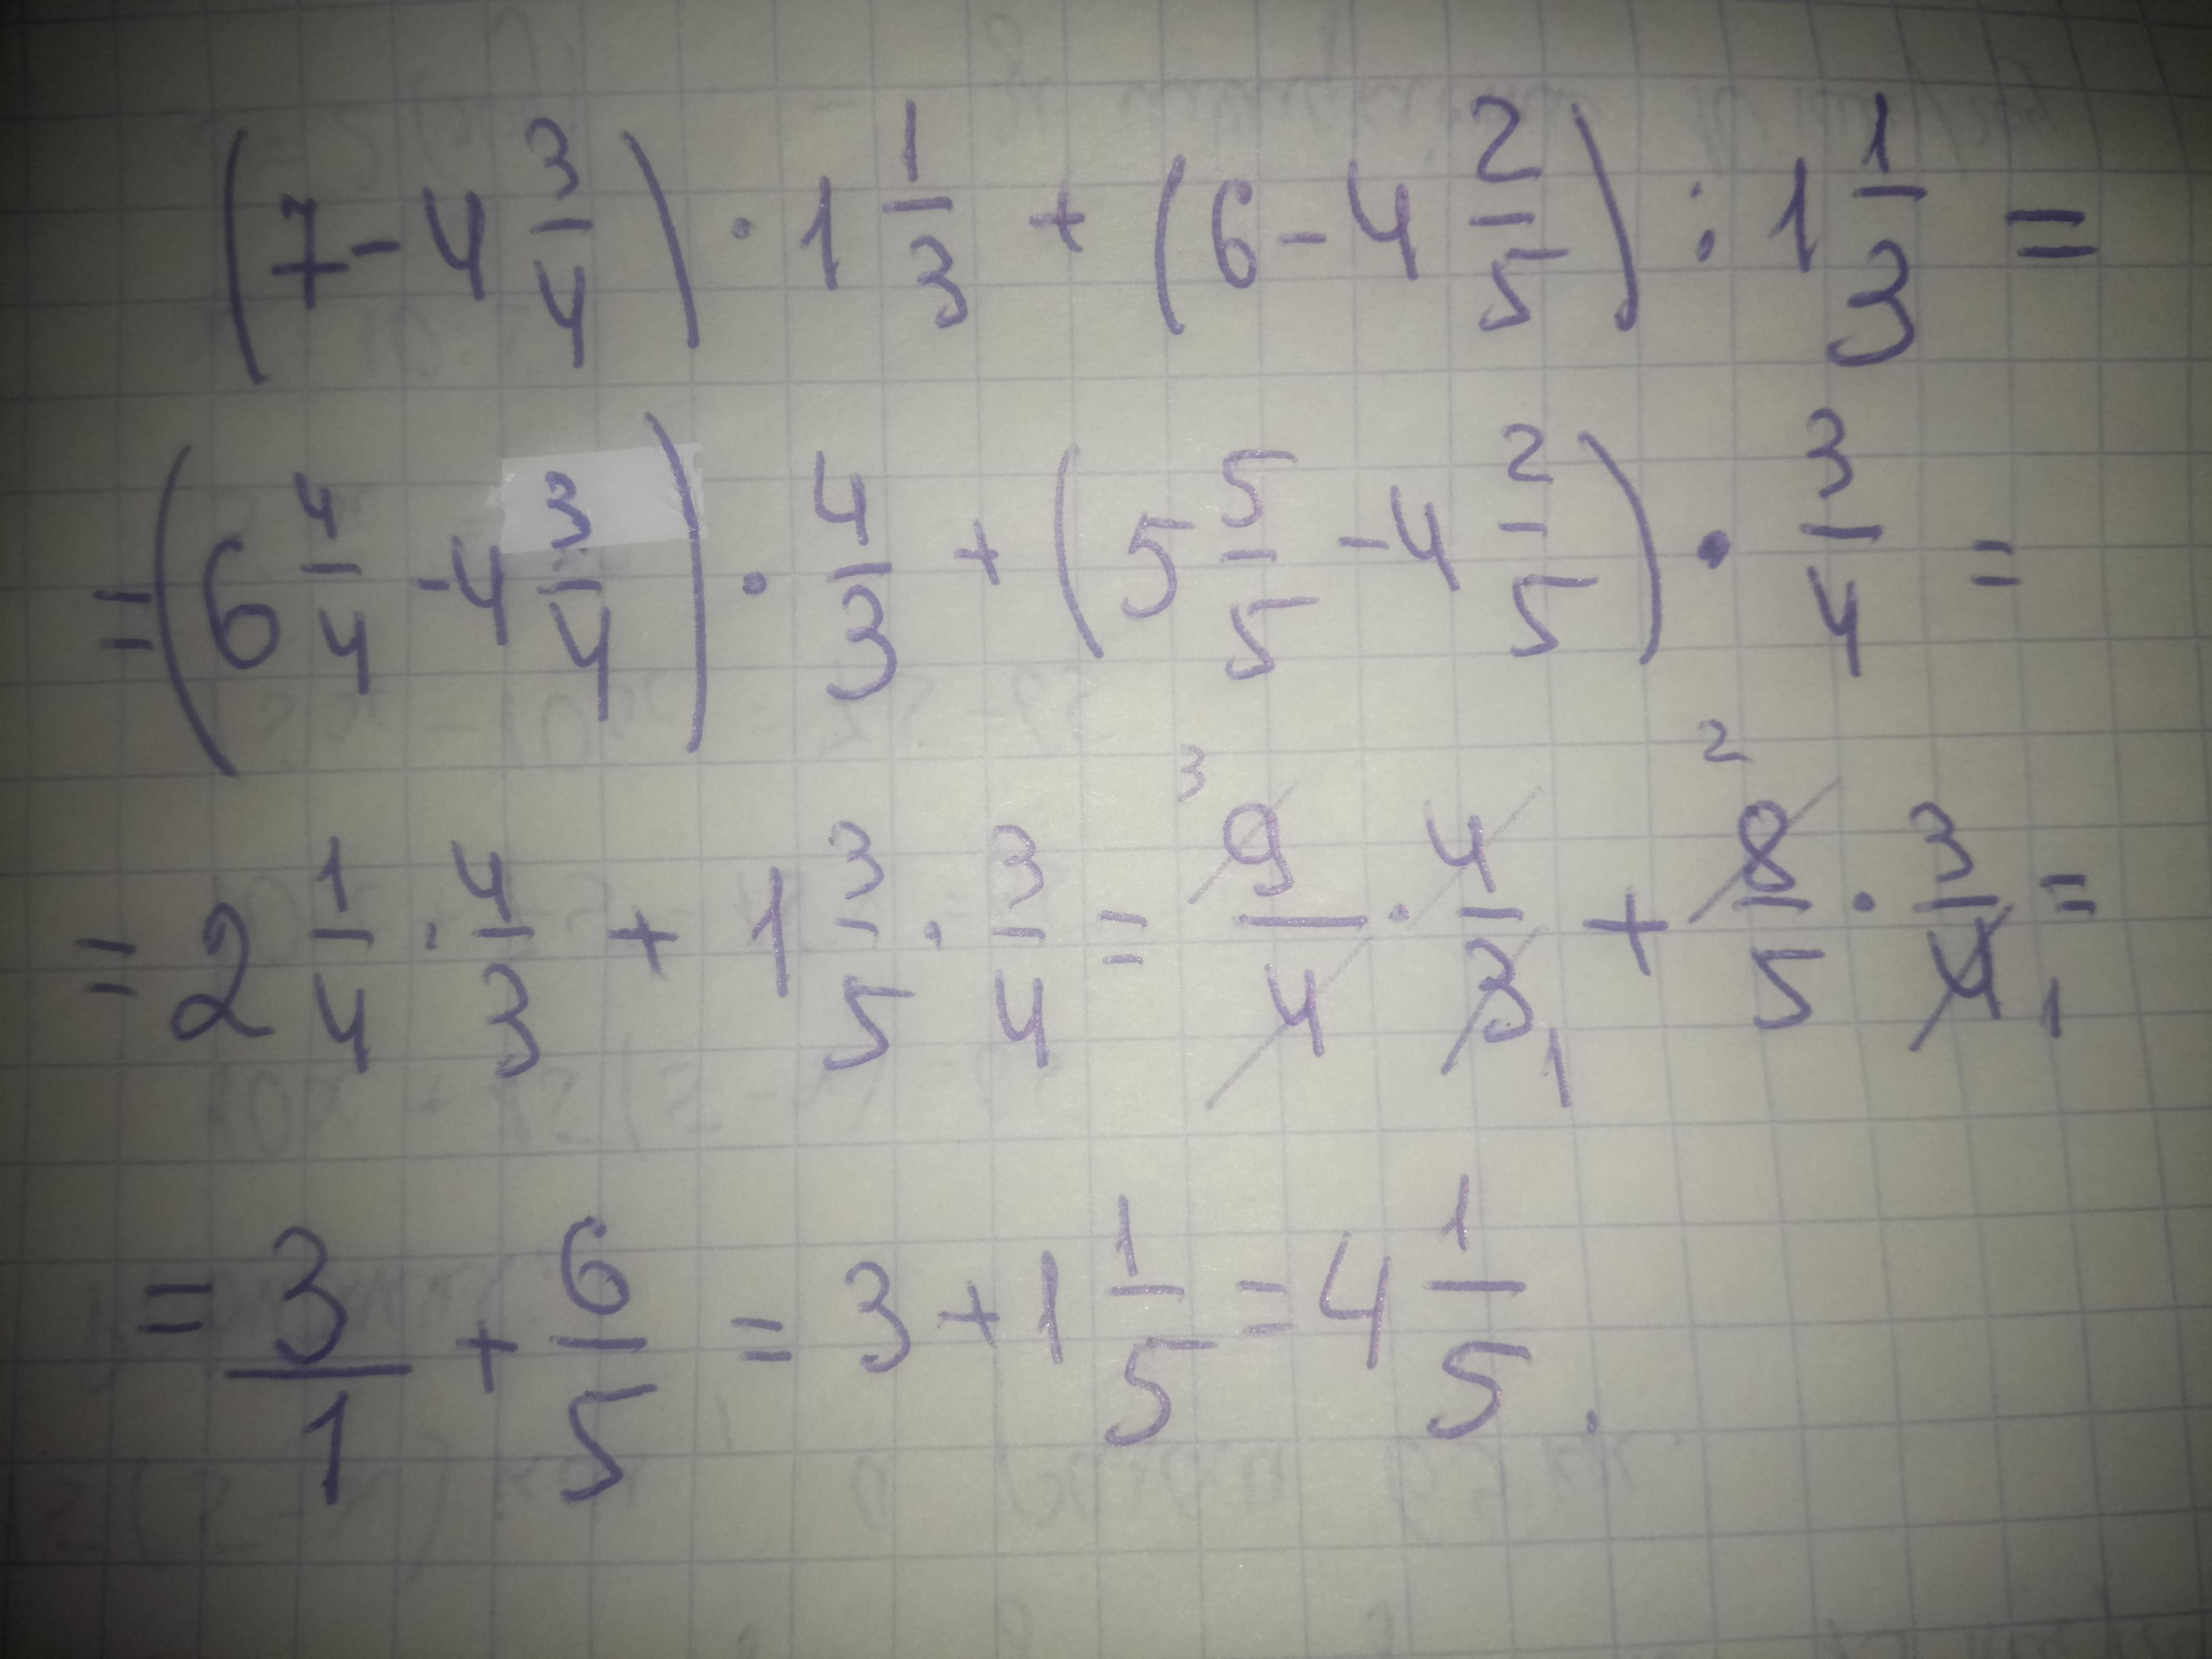 (7 - 4 3/4) · 1 1/3 + (6 - 4 2/5) : 1 1/3 =
= (6 4/4 - 4 3/4) · 4/3 + (5 5/5 - 4 2/5) · 3/4 =
= 2 1/4 · 4/3 + 1 3/5 · 3/4 = 3 9/4 · 4/3 1 + 2 8/5 · 3/4 1 =
= 3/1 + 6/5 = 3 + 1 1/5 = 4 1/5 .